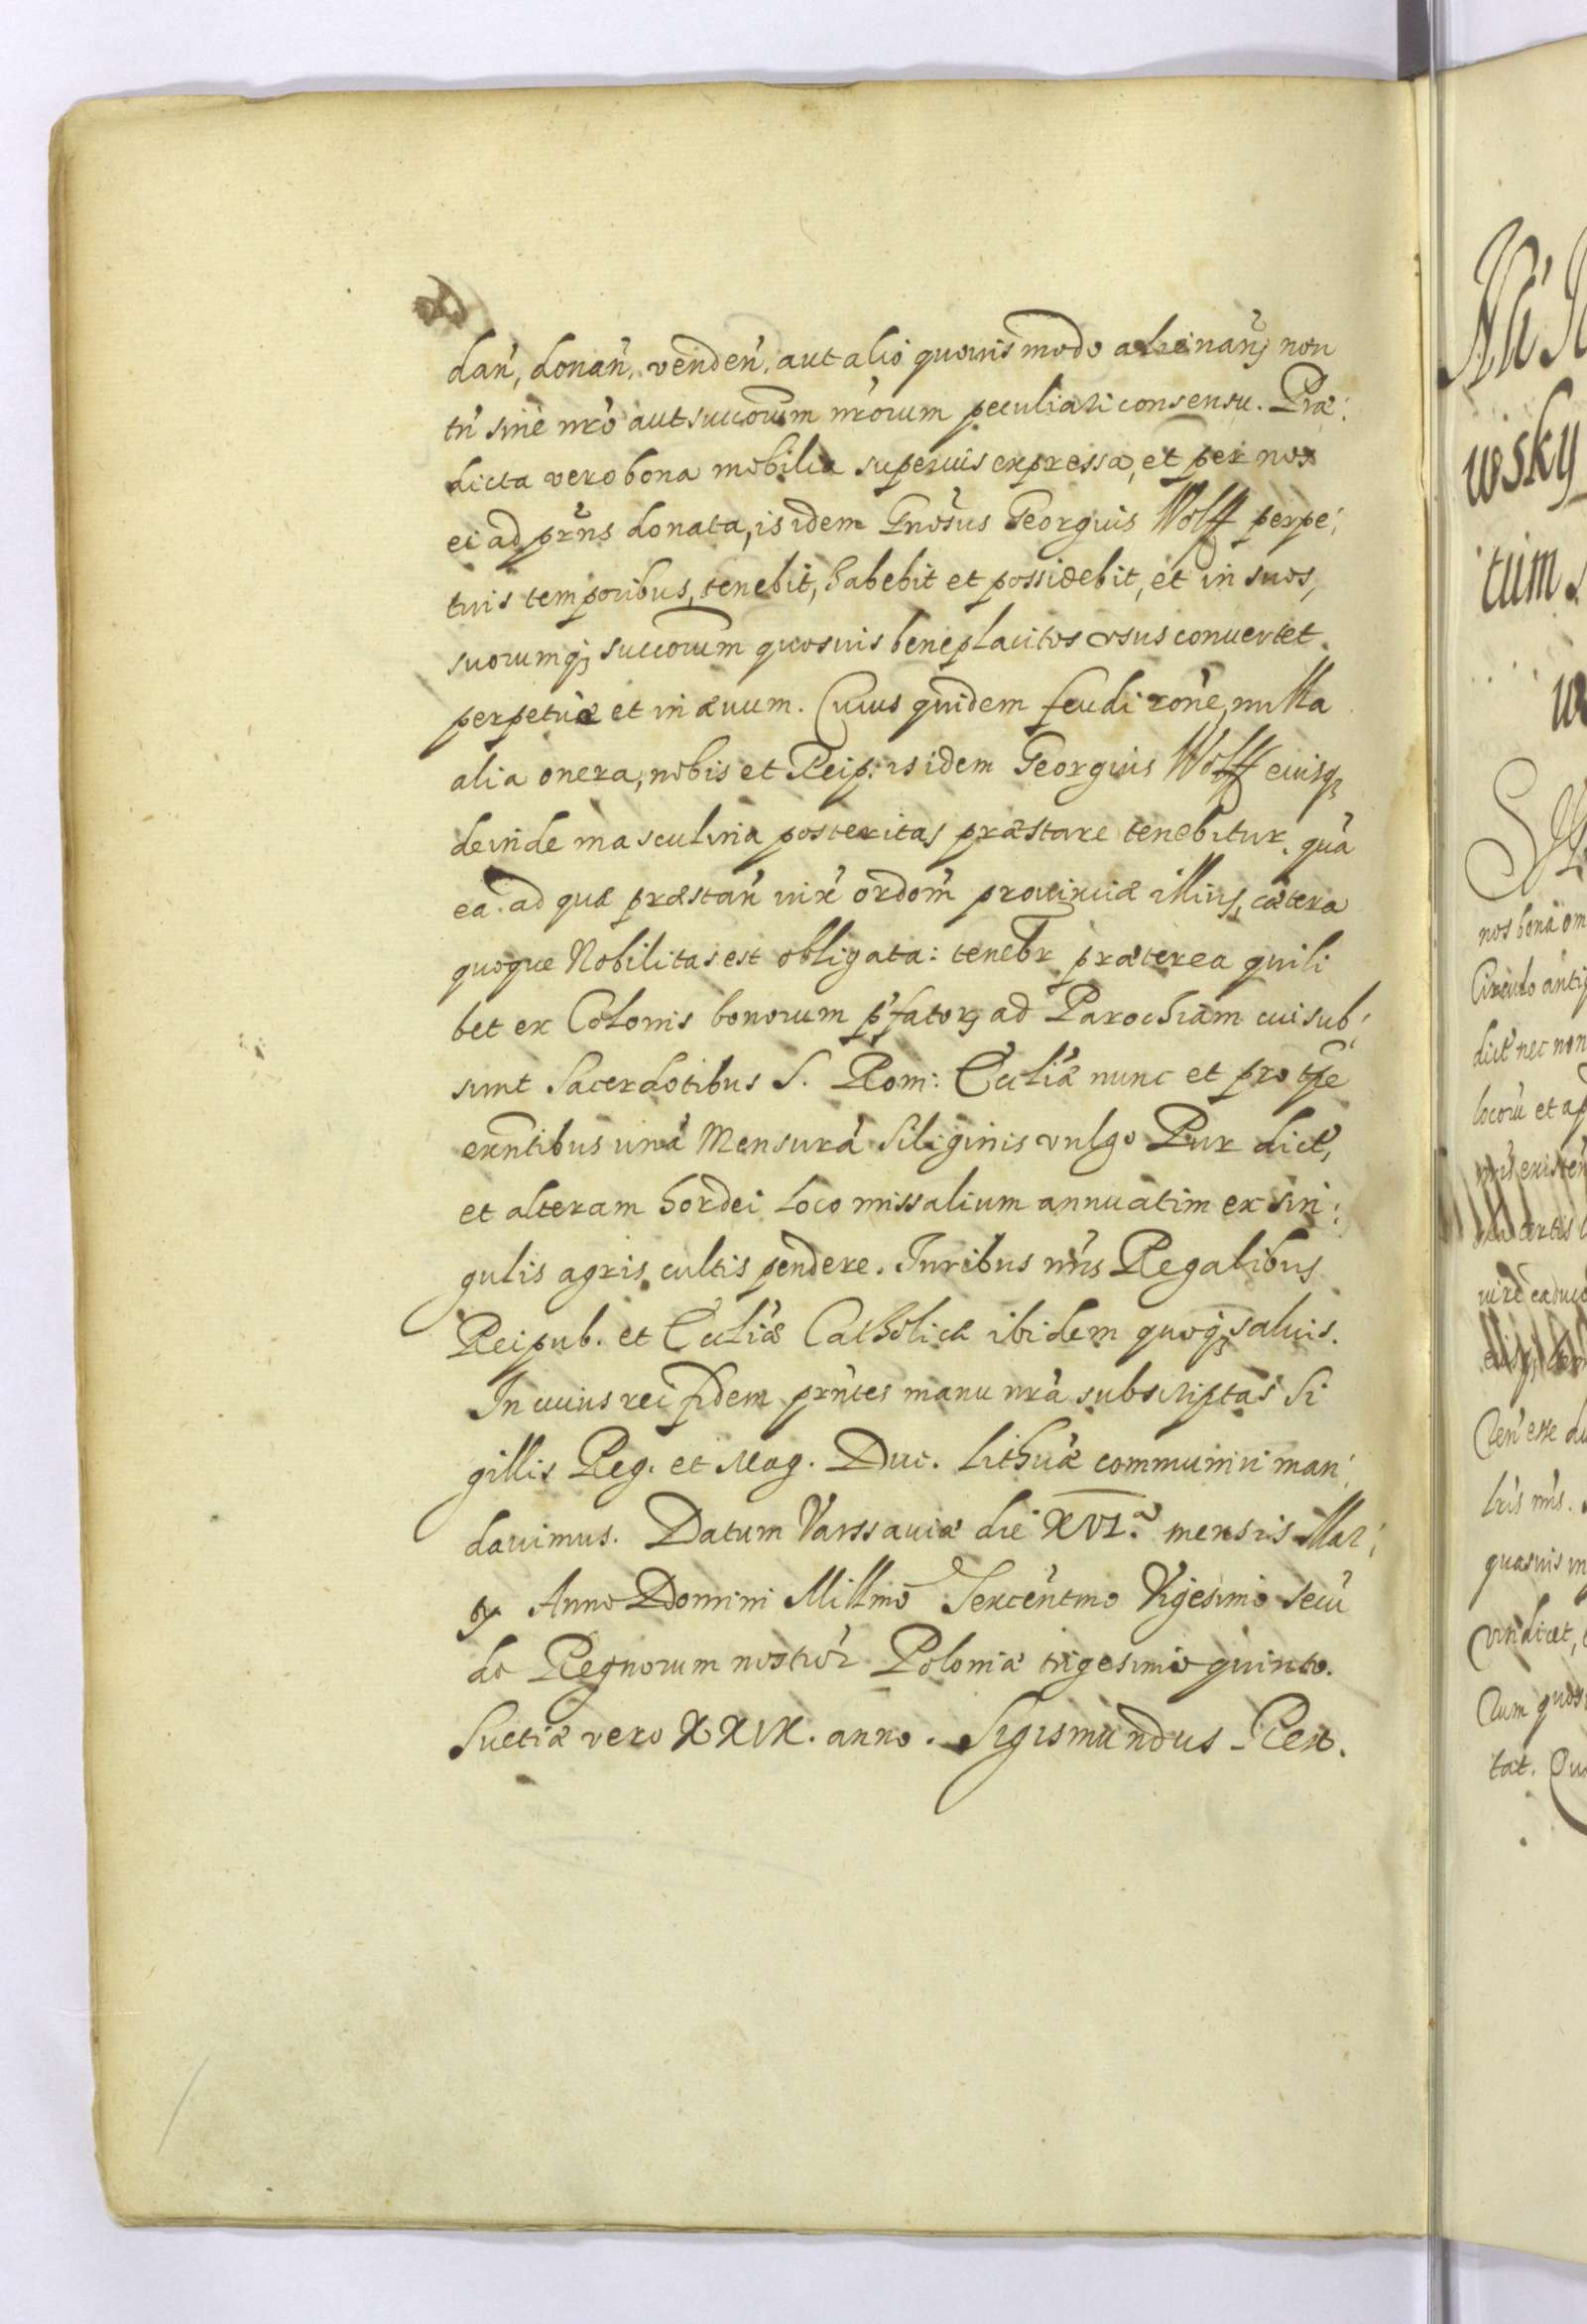 dań, donań, vendeń, aut alio quovis modo alienań, non
tń sine nŕo aut succorum nŕorum peculiari consensu. Præ:
dicta vero bona mobilia superius expressa, et per nos
ei ad prñs donata, is idem Gnosus Georgius Wolff perpe:
tuis temporibus, tenebit, habebit et possidebit, et in suos,
suorumq; succorum quosuis beneplacitos vsus conuertet
perpetuæ et in æuum. Cuius quidem feudi rone, nulla
alia onera, nobis et Reip. is idem Georgius Wolff eiusq;
deinde masculina posteritas præstare tenebitur, quà
ea ad quæ præstań vix́ ordom̃ prouinciæ illius, cætera
quoque Nobilitas est obligata: tenebr præterea quili
bet ex Colonis bonorum p̃fator; ad Parochiam cui sub:
sunt Sacerdotibus S. Rom: Eccliæ nunc et pro tp̃e
exñtibus unà Mensurà Siliginis vulgo Pur dict,
et alteram hordei loco missalium annuatim ex sin:
gulis agris cultis pendere. Juribus nris Regalibus
Reipub. et Eccliæ Catholicæ ibidem quoq; saluis.
In cuius rei fidem prñtes manu nrà subscriptas Si
gillis Reg. et Mag. Duc. Lithuæ communiri man:
dauimus. Datum Varssauiæ die XVI.a mensis Mar:
ty Anno Domini Millmo Sexcentmo Vigesimo secu
do Regnorum nostror Poloniæ trigesimo quinto.
Suetiæ vero XXIX. anno. Sigismundus Rex.
wsky
tum
nos bona om
Circulo anti
dict nec non
locoru et ap
tat.